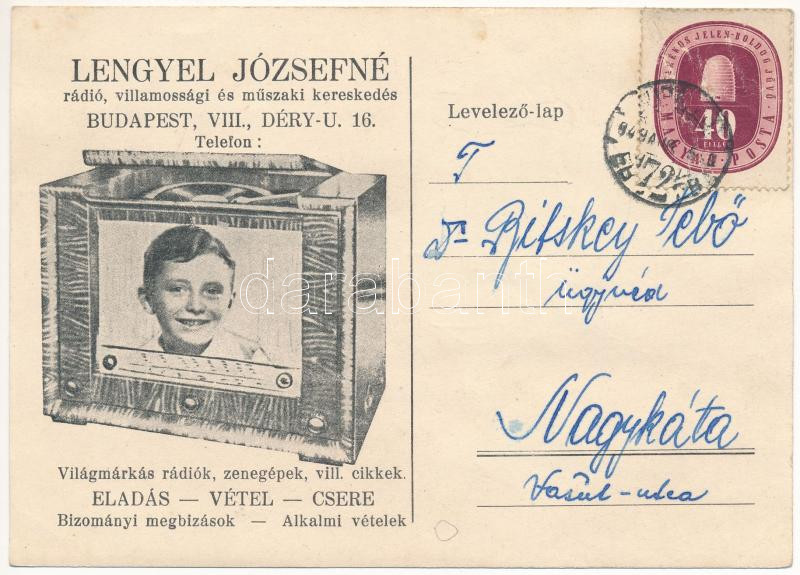 LENGYEL JÓZSEFNÉ
rádió, villamossági és műszaki kereskedés
BUDAPEST, VIII., DÉRY-U. 16.
Telefon :
Világmárkás rádiók, zenegépek, vill. cikkek.
ELADÁS — VÉTEL — CSERE
Bizományi megbizások — Alkalmi vételek
Levelező-lap
T
Dr Bitskey Tebő
ügyvéd
Nagykáta
Vasút-utca
JELEN-BOLDOG JÖVŐ
40
FILLÉR
MAGYAR POSTA
72
darabanth